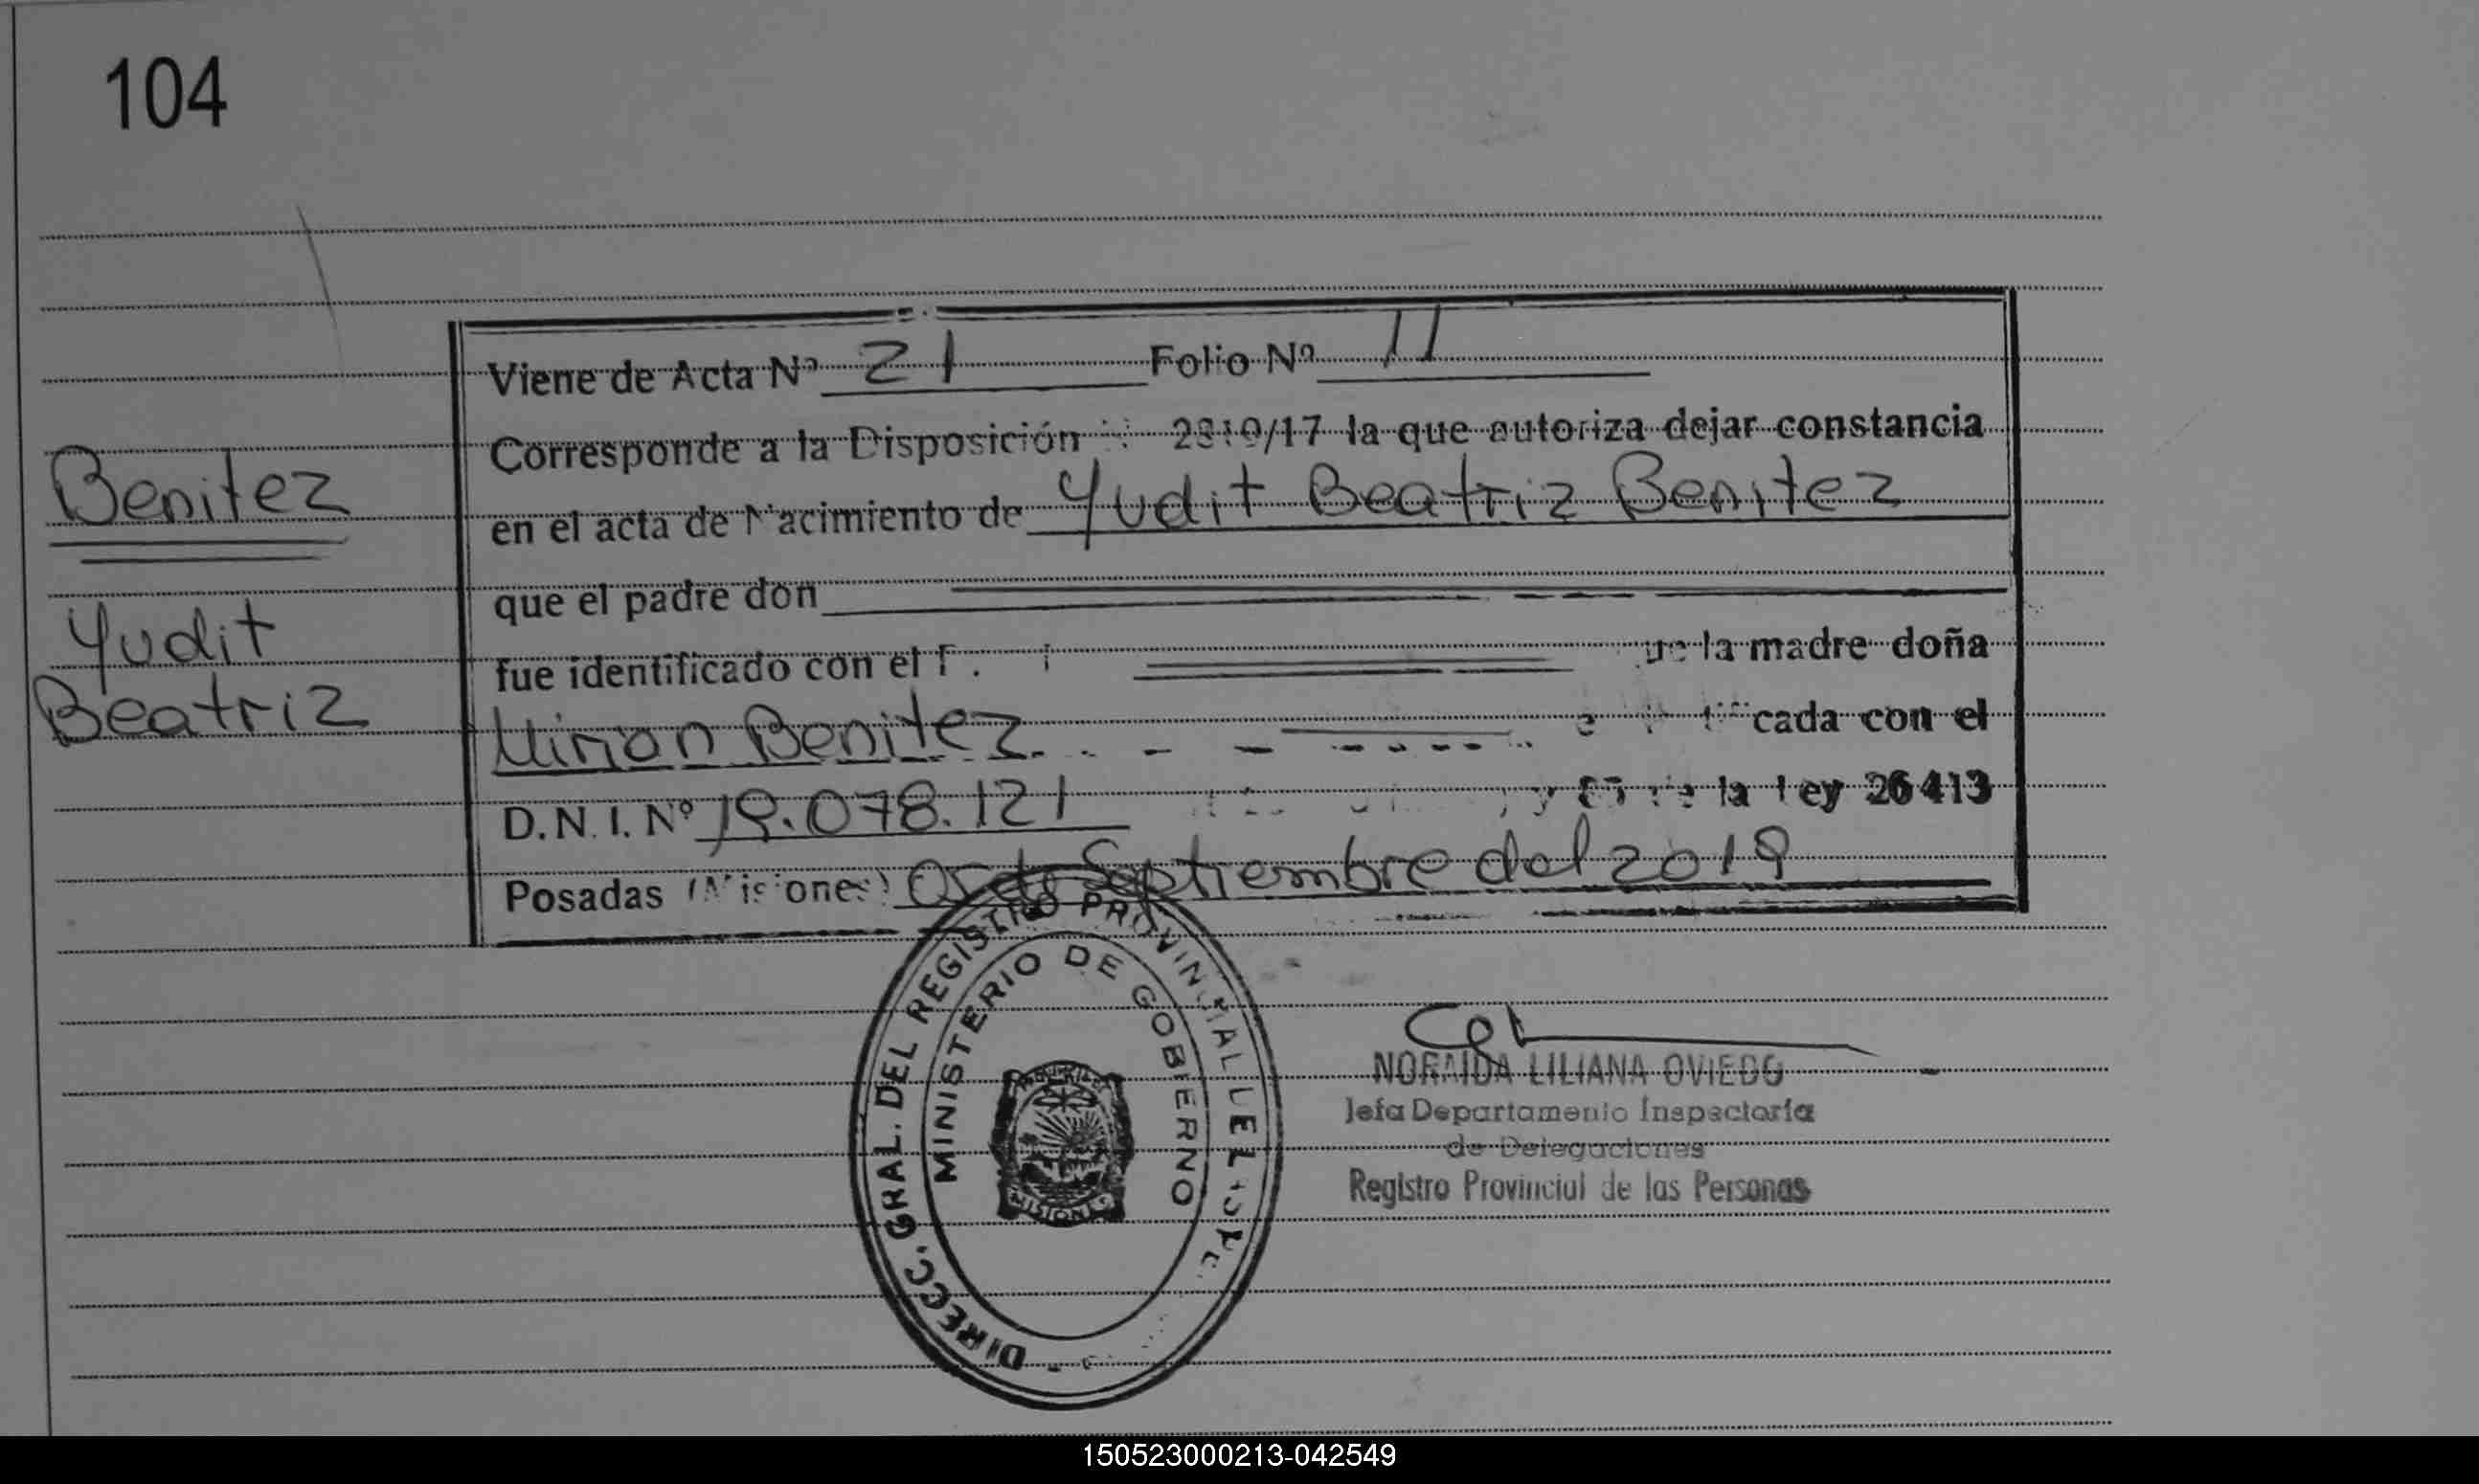 104
Viene de Acta Nº 21 Folio Nº 11
Corresponde a la Disposición 2310/17 la que autoriza dejar constancia
en el acta de Nacimiento de Yudit Beatriz Benitez
que el padre don
fue identificado con el la madre doña
Mirian Benitez cada con el
D.N.I. Nº 19.078.121 la Ley 26413
Posadas (Misiones) de Septiembre del 2019
Benitez
Yudit
Beatriz
DIRECC. GRAL. DEL REGISTRO PROVINCIAL DE
MINISTERIO DE GOBIERNO
MISIONES
NORAIDA LILIANA OVIEDO
Jefa Departamento Inspectoría
de Delegaciones
Registro Provincial de las Personas
150523000213-042549